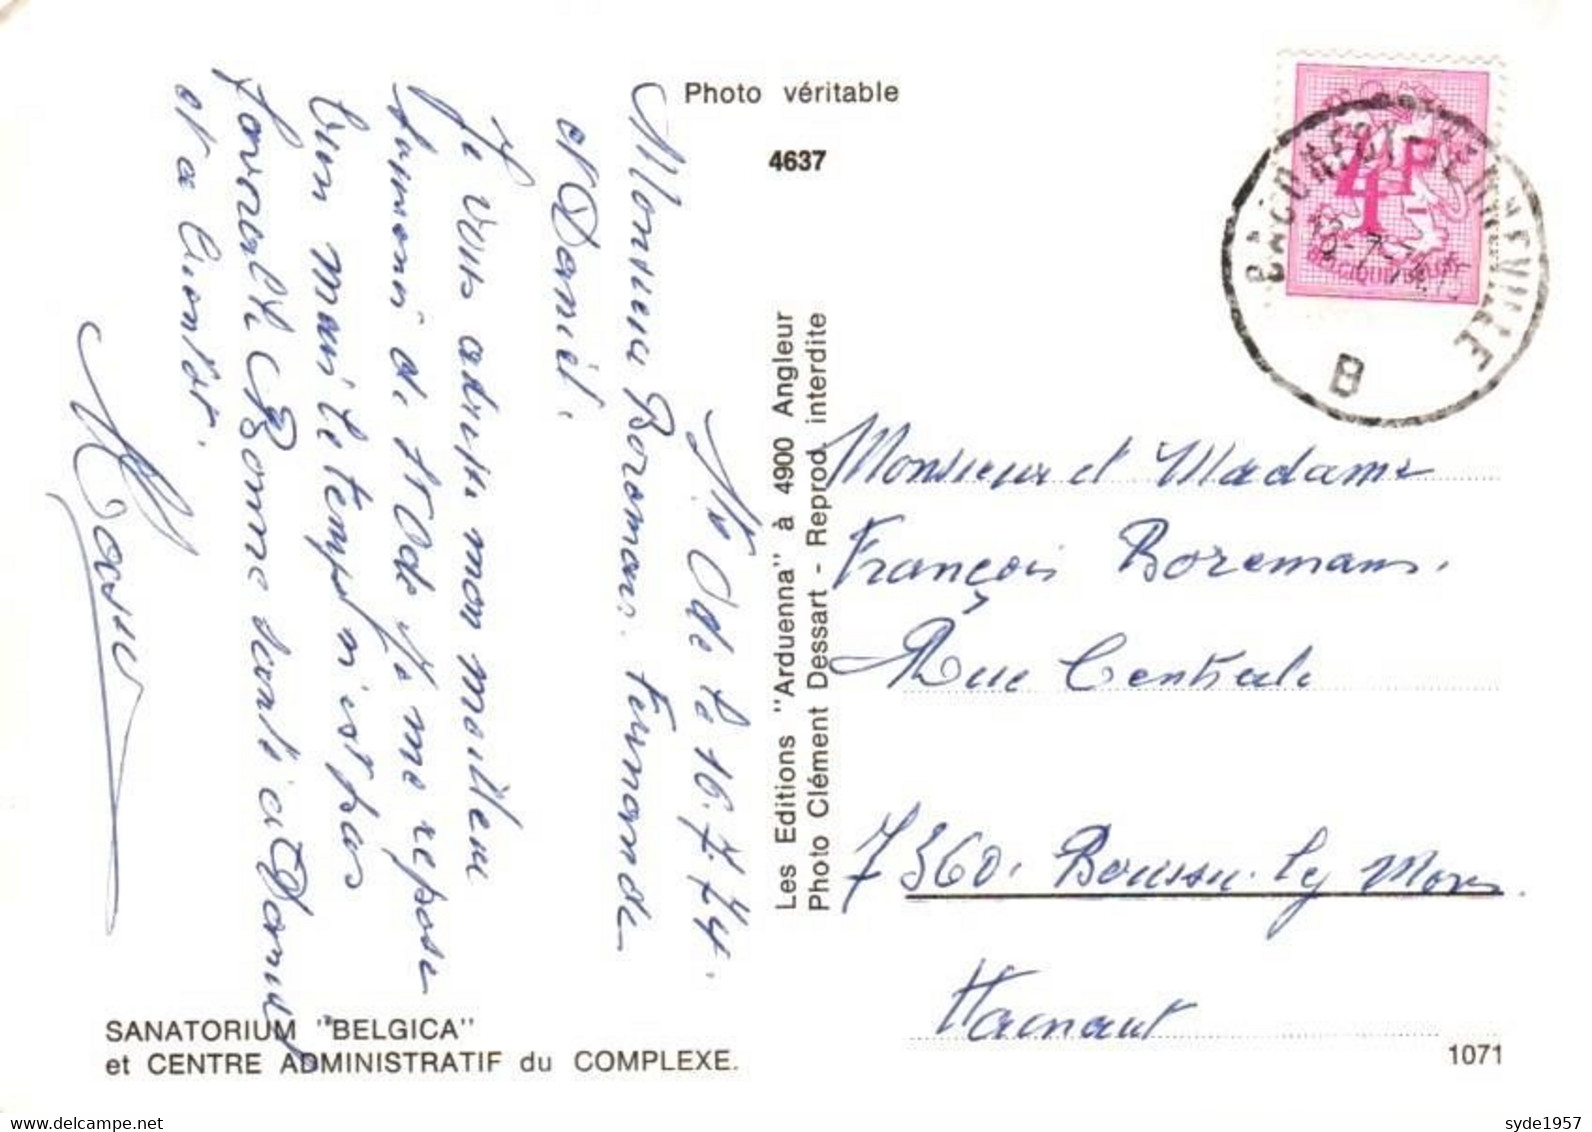 Photo véritable
4637
4F
BELGIQUE-BELGIE
B
St Ode le 16.7.74.
Monsieur Boremans. Fernande
et Daniel.
Je vous adresse mon meilleur
de St Ode je me repose
bien mais le temps n'est pas
favorable Bonne santé à Daniel
et à bientôt.
Les Editions "Arduenna" à 4900 Angleur
Photo Clément Dessart - Reprod. interdite
Monsieur et Madame
François Boremans.
Rue Centrale
7360. Boussu. Lg Mons.
Hainaut
SANATORIUM "BELGICA"
et CENTRE ADMINISTRATIF du COMPLEXE.
1071
syde1957